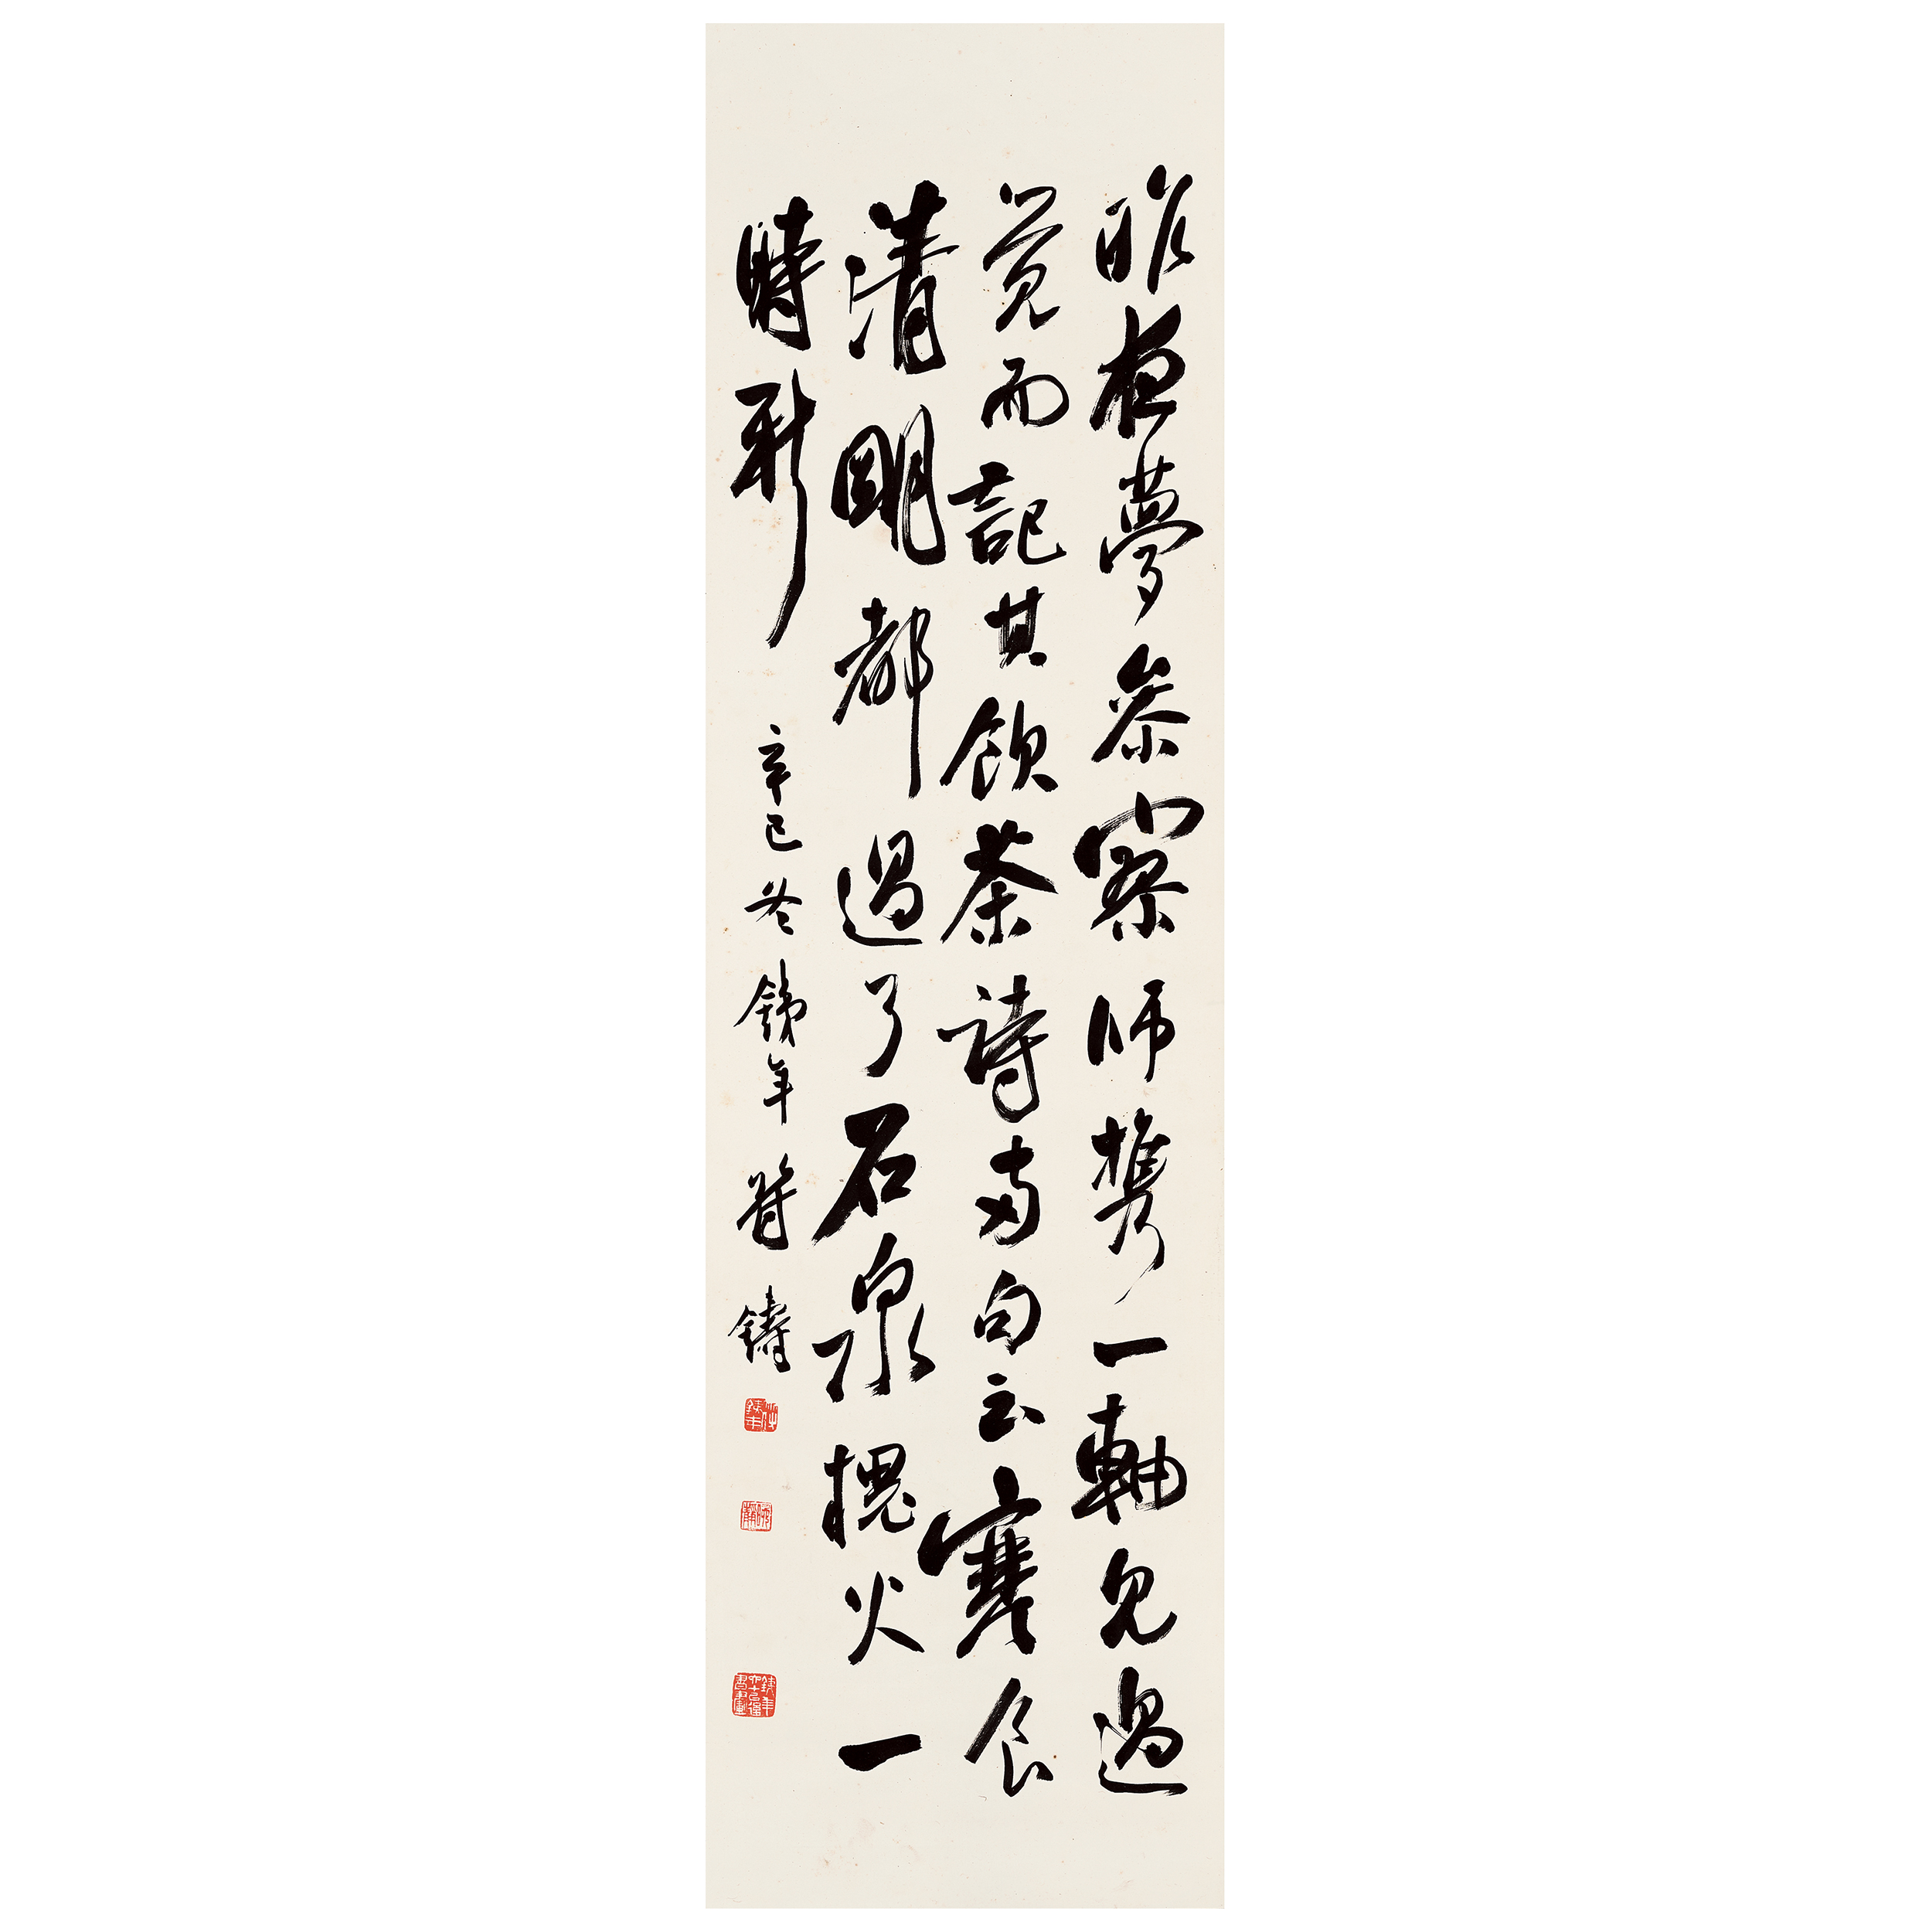 昨夜夢參寥師攜一軸見過
覺而記其飲茶詩兩句云寒食
清明都過了石泉槐火一
時新
辛巳冬銕年符鑄
符銕年